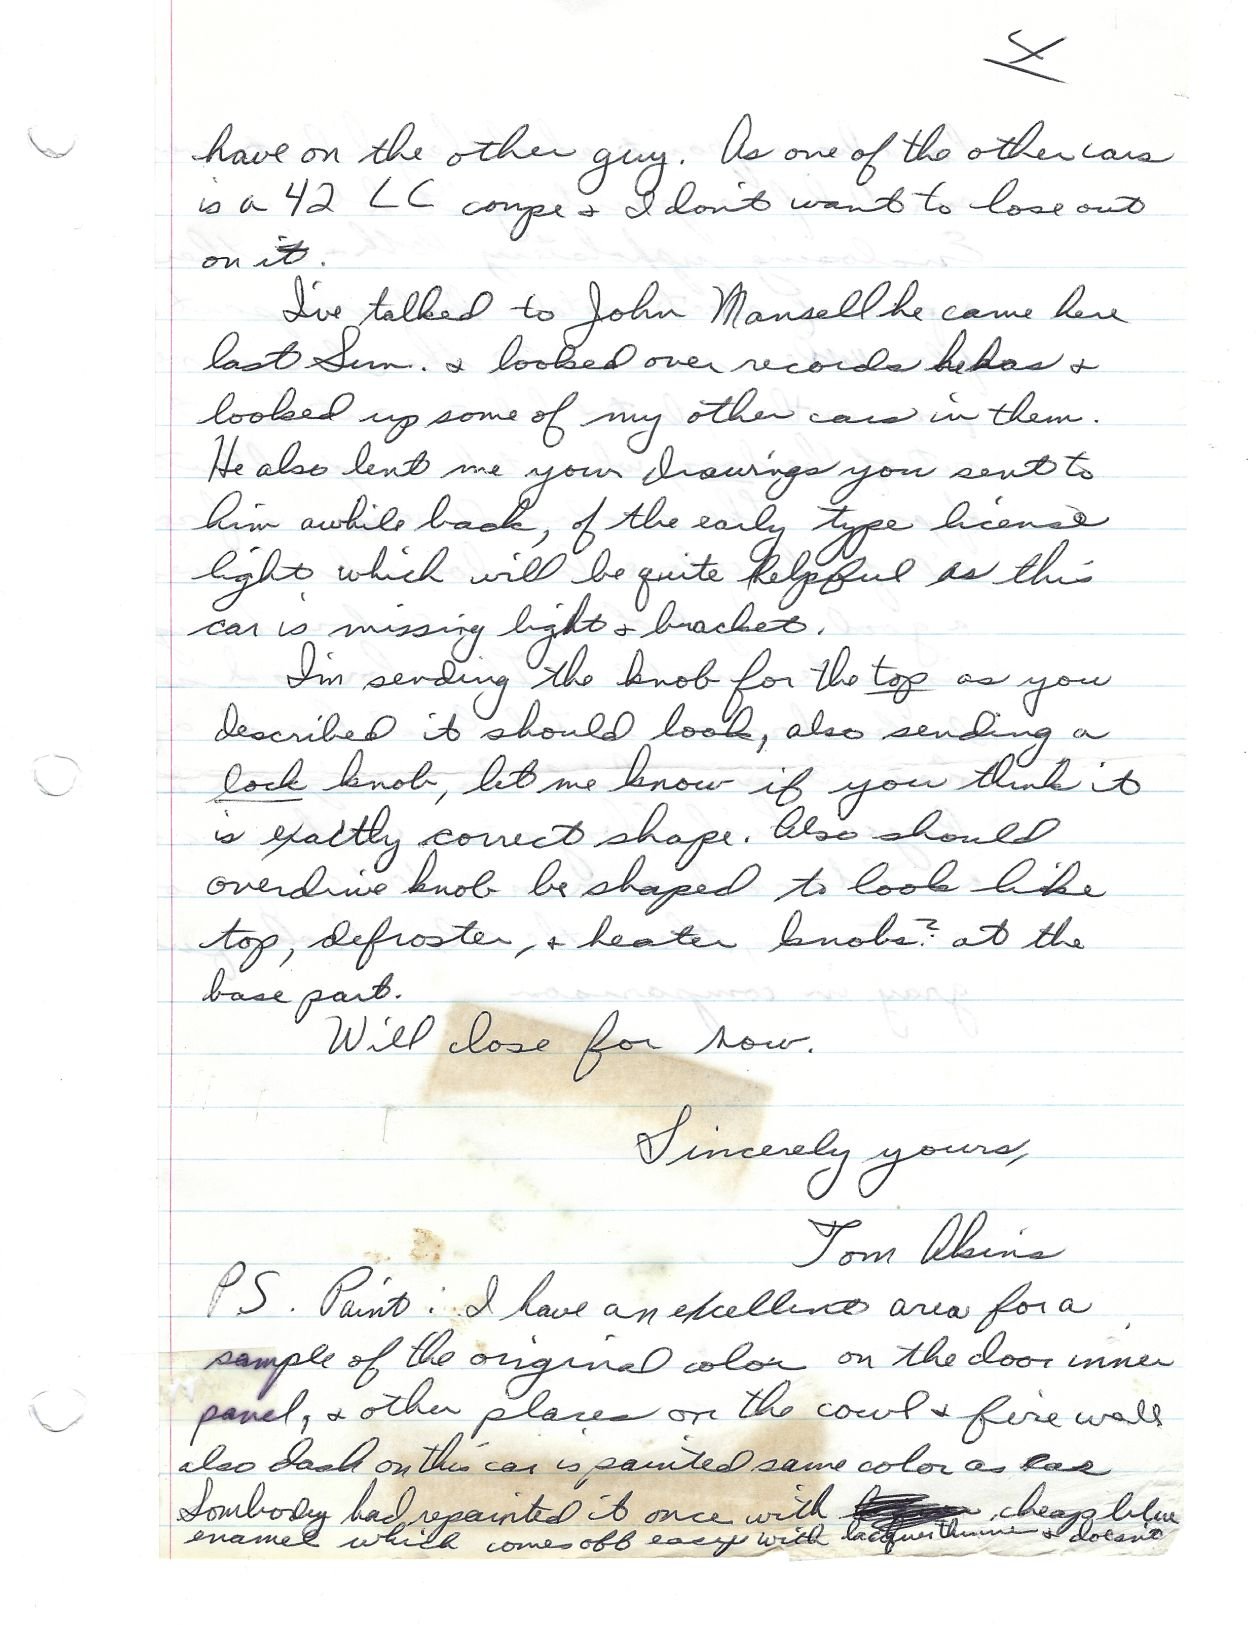 4
have on the other guy. As one of the other cars
is a 42 LC coupe & I don't want to lose out
on it.
I've talked to John Mansell he came here
last Sun. & looked over records he has &
looked up some of my other cars in them.
He also lent me your drawings you sent to
him awhile back, of the early type license
light which will be quite helpful as this
car is missing light & bracket.
I'm sending the knob for the top as you
described it should look, also sending a
lock knob, let me know if you think it
is exactly correct shape. Also should
overdrive knob be shaped to look like
top, defroster, & heater knobs? at the
base part.
Will close for now.
Sincerely yours,
Tom Akins
PS. Paint: I have an excellent area for a
sample of the original color on the door inner
panel, & other places on the cowl & fire wall
also dash on this car is painted same color as car
Sombody had repainted it once with cheap blue
enamel which comes off easy with lacquer thinner & doesnt